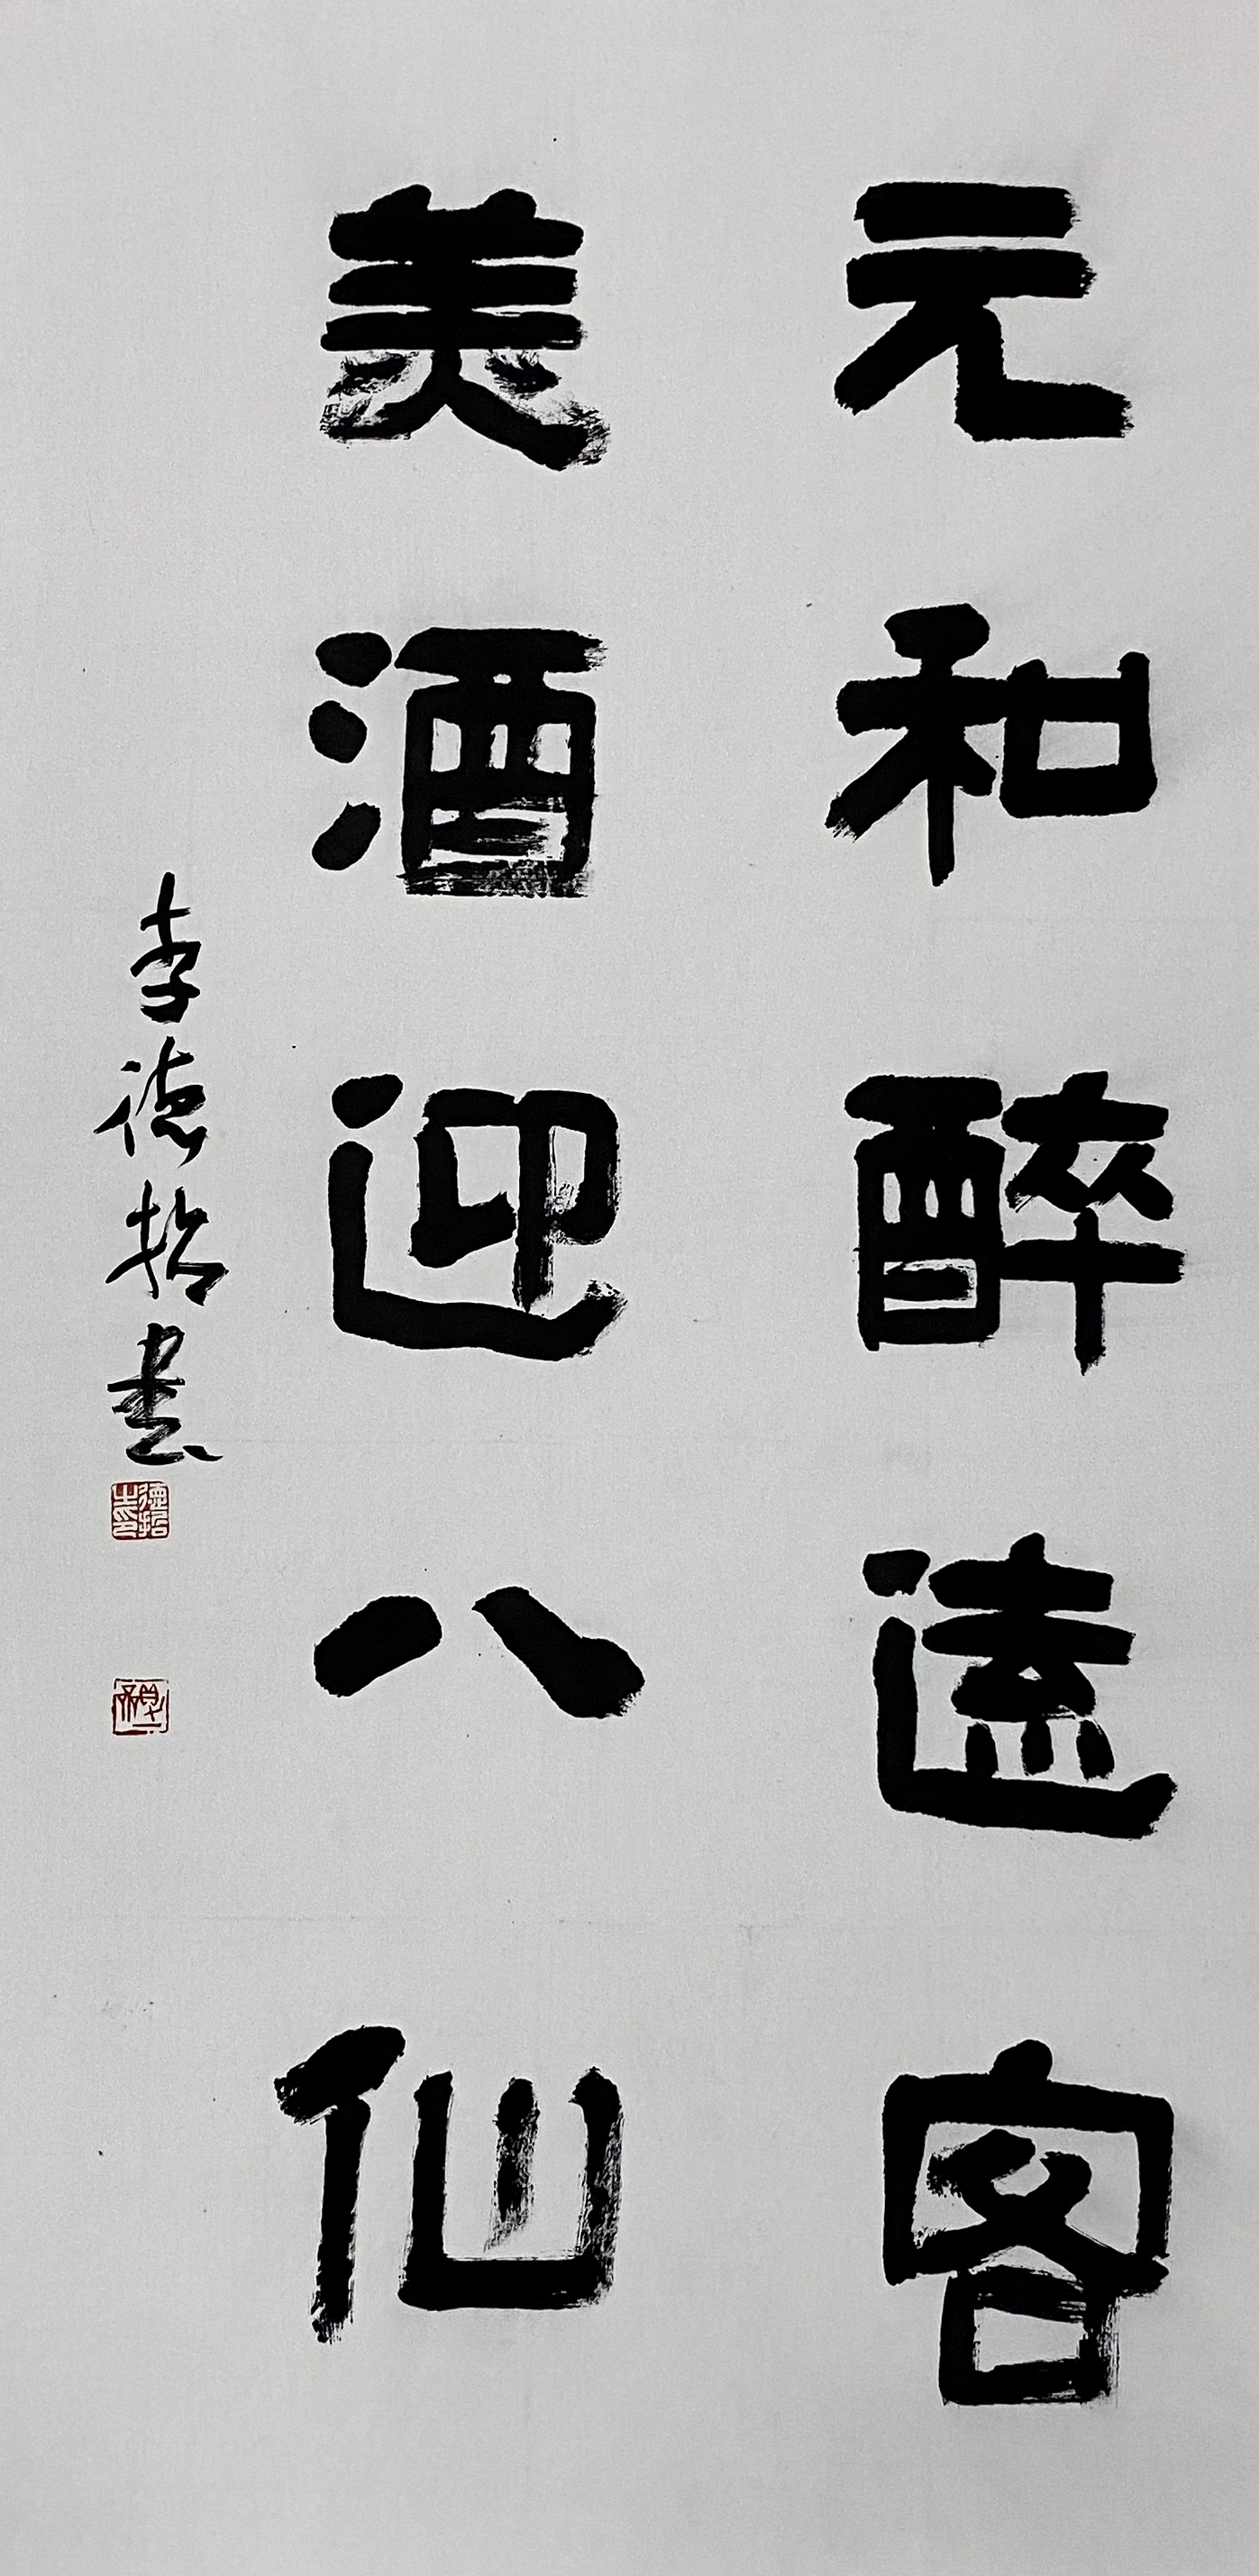 元和醉遠客
美酒迎八仙
李德哲書